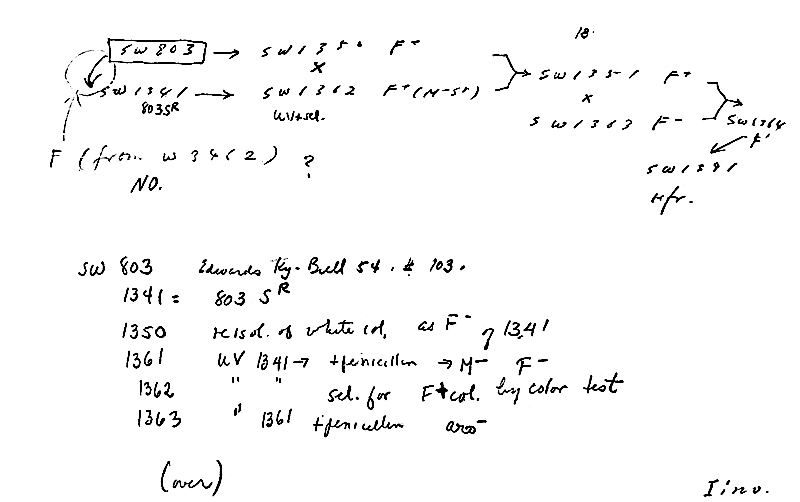 18.
SW 803 → SW 1350 F+
x
SW 1341 → SW 1362 F+ (M-Sr) SW 1351 F+
803SR UV+sel. x
SW 1363 F- SW 1364
F+
F (from W 3462) ? SW 1391
NO. Hfr.
SW 803 Edwards Ky-Brill 54. # 103.
1341 = 803 SR
1350 reisol. of white col. as F- of 1341
1361 UV 1341 → +penicillin → M- F-
1362 " " sel. for F+ col. by color test
1363 " 1361 +penicillin aro-
(over)
Iino.